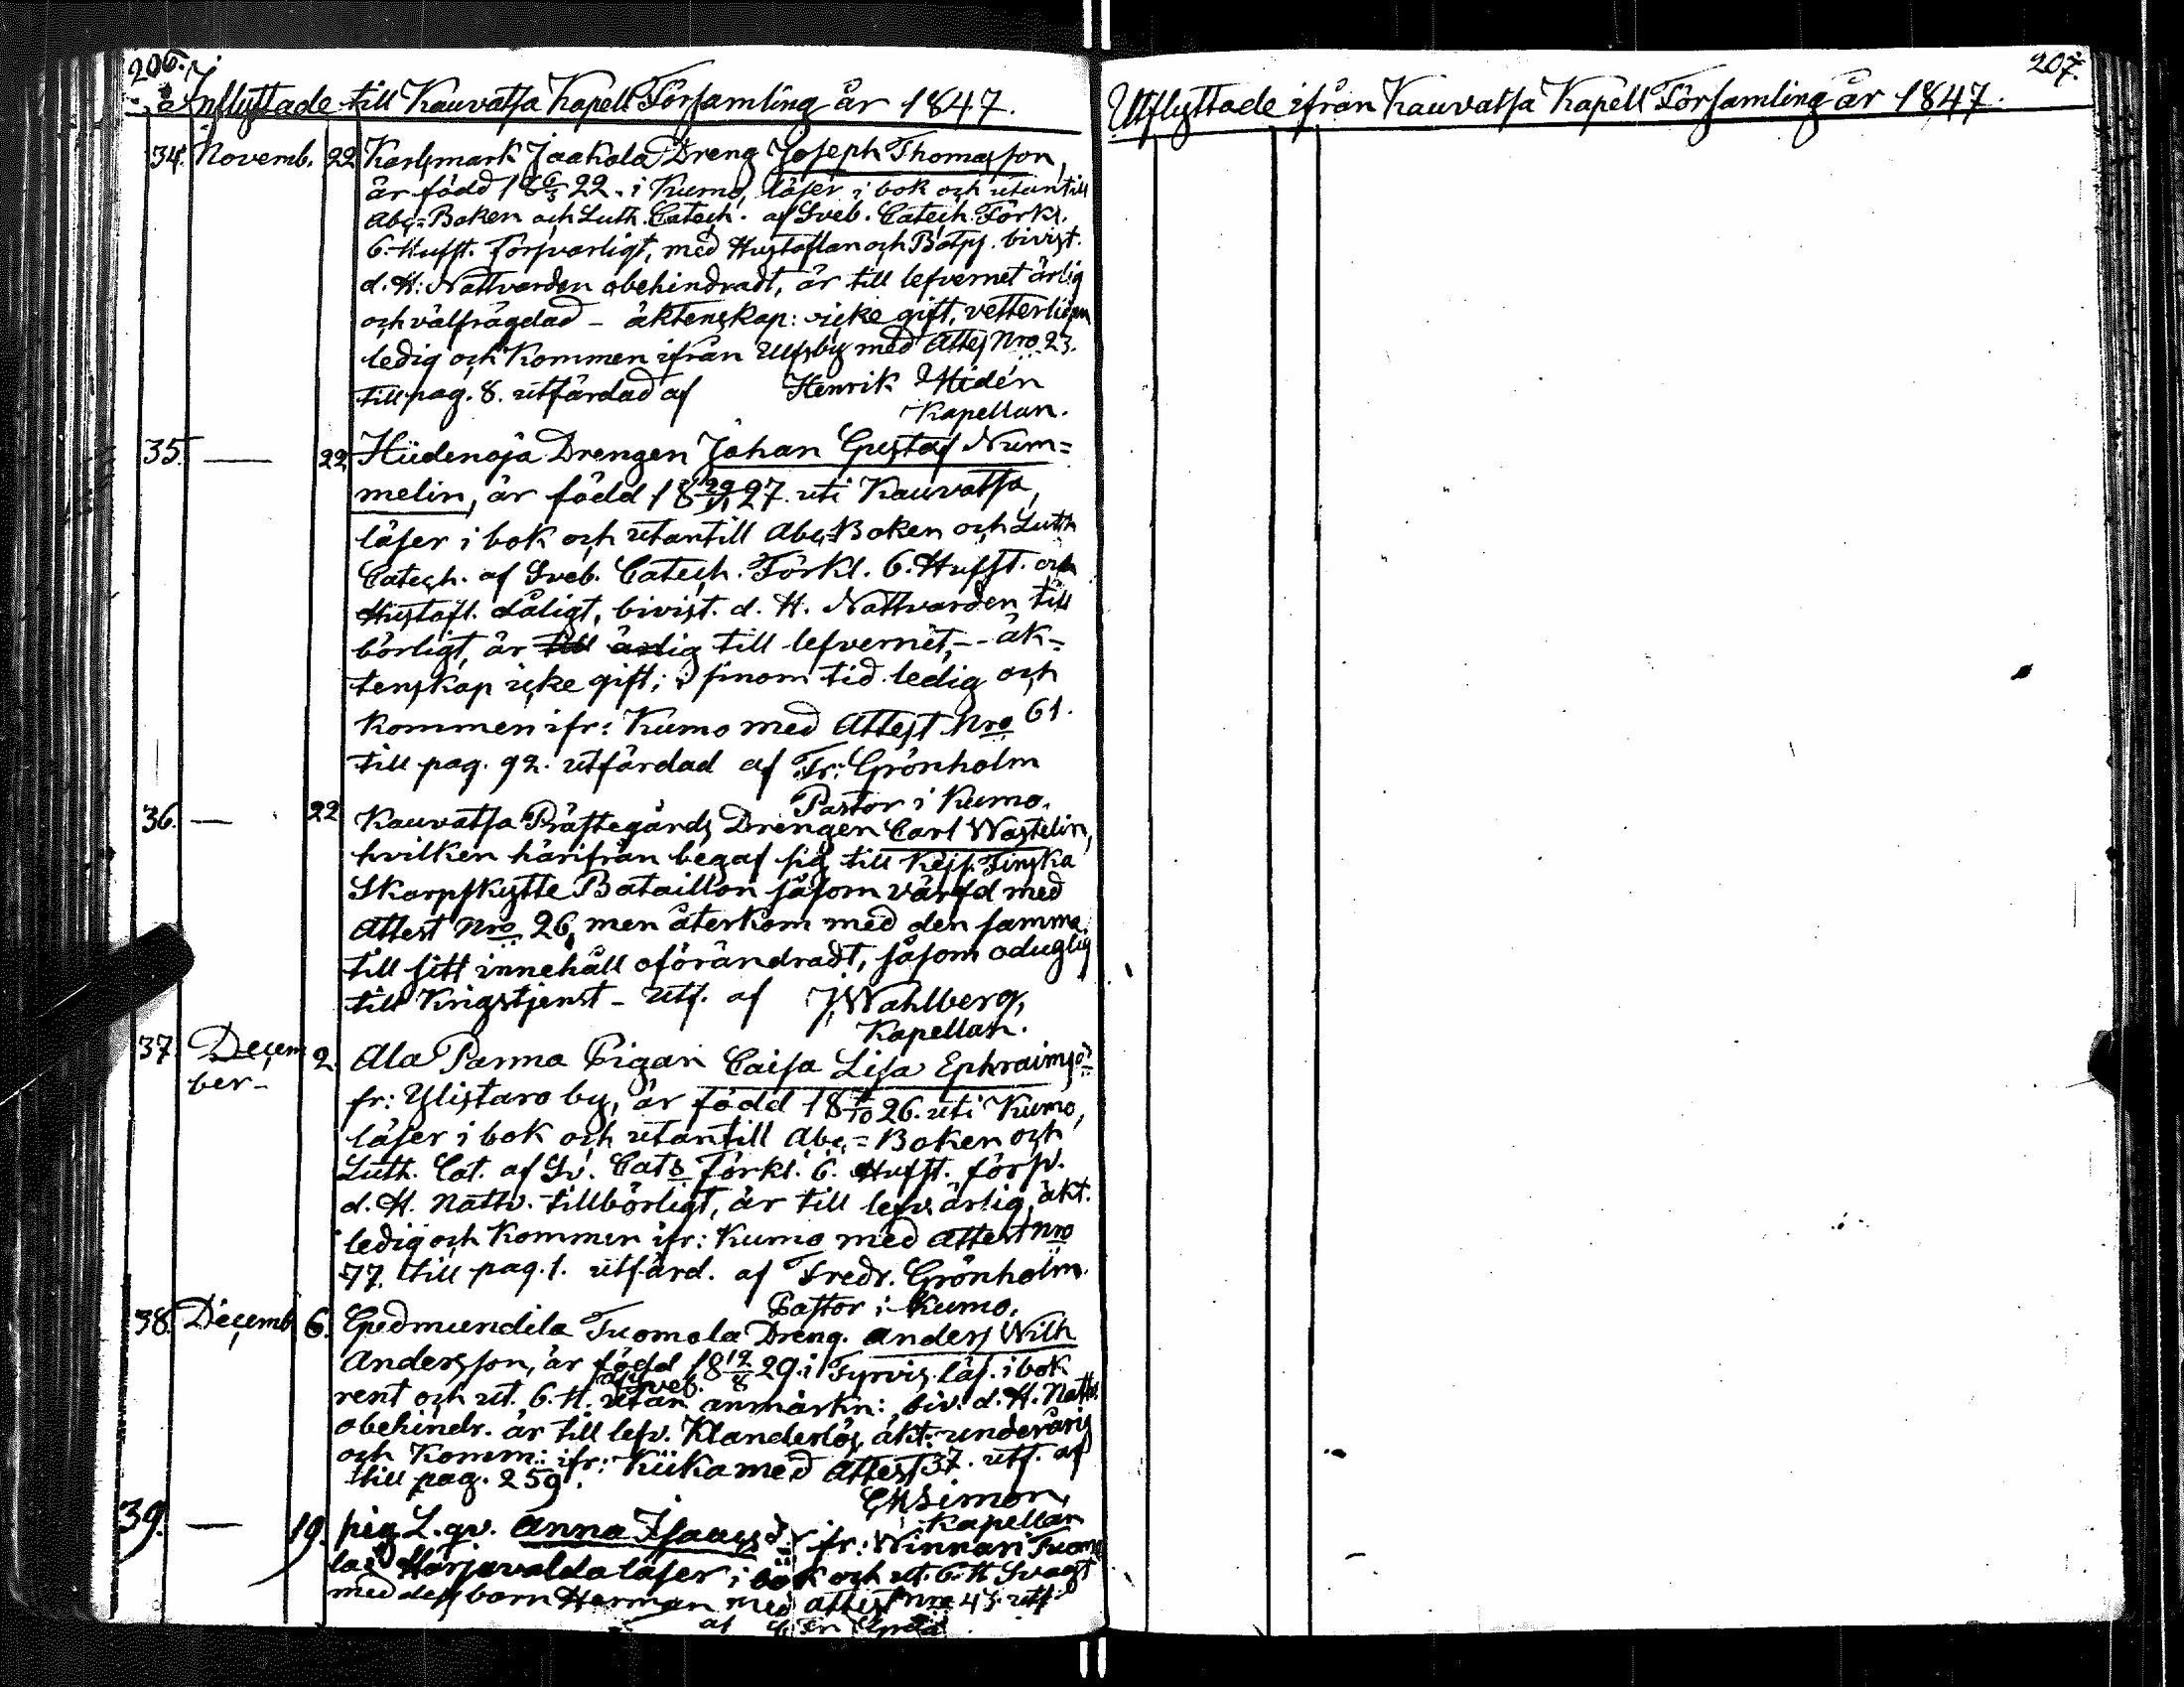 206.
Inflyttade till Kauvatsa Kapell Församling år 1847.
34. Novemb. 22 Karlsmark Jaakola Dreng Joseph Thomasson,
är född 18 6/3 22. i Kumo, läser i bok och utantill
Abc-Boken och Luth. Catech. af Sveb. Catech. Förkl.
6. Hufst. försvarligt, med Hustaflan och Botps. bivist.
d. H: Nattvarden obehindradt, är till lefvernet ärlig
och välfrägdad – äktenskap: icke gift, vetterligen
ledig och Kommen ifrån Ulfsby med Attest Nro 23.
till pag. 8. utfärdad af Henrik Hidén
Kapellan.
35. — 22 Hiidenoja Drengen Johan Gustaf Num=
melin, är född 18 29/11 27. uti Kauvatsa,
läser i bok och utantill Abc-Boken och Luth
Catech. af Sveb. Catech. Förkl. 6. Hufst. och
Hustafl. dåligt, bivist. d. H. Nattvarden till
börligt, är till ärlig till lefvernet, – äk=
tenskap icke gift; inom tid ledig och
kommen ifr: Kumo med Attest Nro 61.
till pag. 92. utfärdad af Fr: Grönholm
Pastor i Kumo.
36. — 22 Kauvatsa Prästegårds Drengen Carl Wastelin,
hvilken härifrån begaf sig till Kejs. Finska
Skarpskytte Bataillon såsom värfd med
Attest Nro 26, men återkom med den samma
till sitt innehåll oförändradt, såsom oduglig
till Krigstjenst – utf. af J. Wahlberg,
Kapellan.
37. Decem 2. Ala Parma Pigan Caisa Lisa Ephraimsdr
ber –
fr: Ylistaro by, är född 18 /10 26. uti Kumo,
läser i bok och utantill Abc=Boken och
Luth. Cat. af Sv. Cats Förkl. 6. Hufst. försv.
d. H. Nattv. tillbörligt, är till lefv. ärlig, äkt.
ledig och Kommen ifr: Kumo med Attest Nro
77. till pag. 1. utfärd. af Fredr. Grönholm.
Pastor i Kumo.
38. Decemb 6. Gudmundila Tuomola Dreng. Anders Wilh
Andersson, är född 18 12/8 29. i Tyrvis, läs. i bok
af Sveb.
rent och ut. 6. H. utan anmärkn: biv. d. H. Nattv.
obehindr. är till lefv. Klanderlös, äkt: underårig
och Komm: ifr: Kiika med Attest 37. utf. af
till pag. 259.
Simon,
Kapellan
39. — 19. pig. L. qv. Anna Isaacsdr ifr: Winnari Tuomo
la Harjavalda läser i bok och ut. 6. H. Svagt
med dess barn Herman med attest Nro 43. utf
af
207.
Utflyttade ifrån Kauvatsa Kapell Församling år 1847.